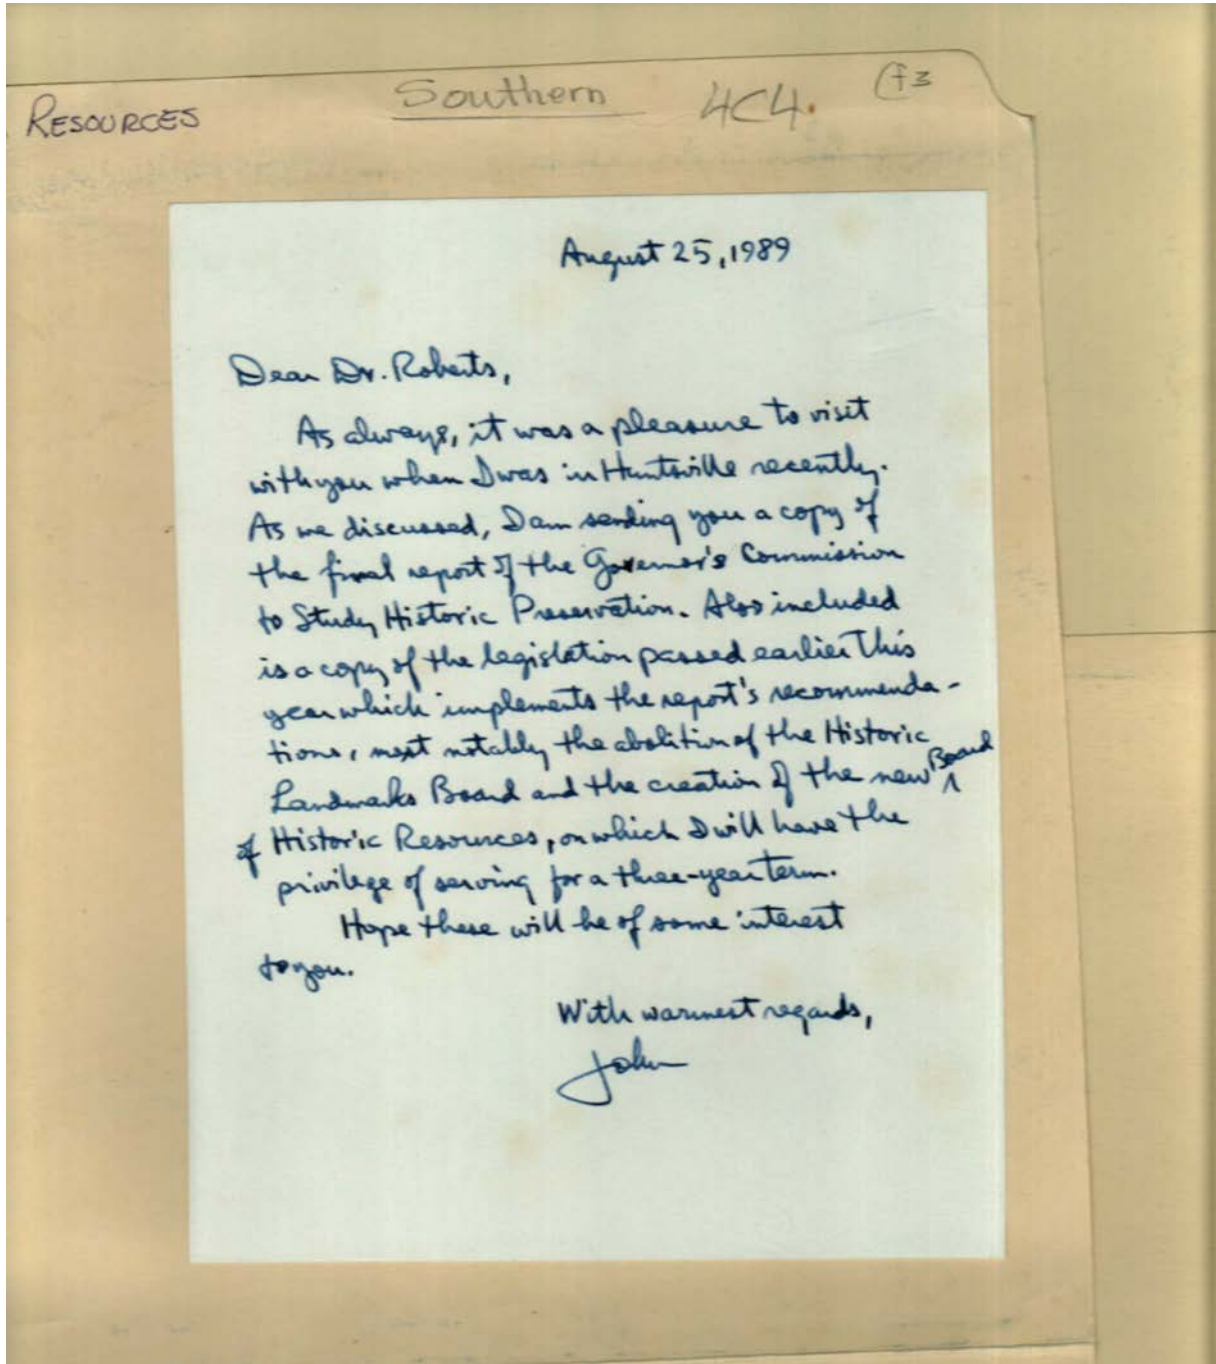 RESOURCES
Southern
4C4.
(f3
August 25, 1989
Dear Dr. Roberts,
As always, it was a pleasure to visit
with you when I was in Huntsville recently.
As we discussed, I am sending you a copy of
the final report of the Governor's Commission
to Study Historic Preservation. Also included
is a copy of the legislation passed earlier this
year which implements the report's recommenda-
tions, most notably the abolition of the Historic
Landmarks Board and the creation of the new Board
of Historic Resources, on which I will have the
privilege of serving for a three-year term.
Hope these will be of some interest
to you.
With warmest regards,
John